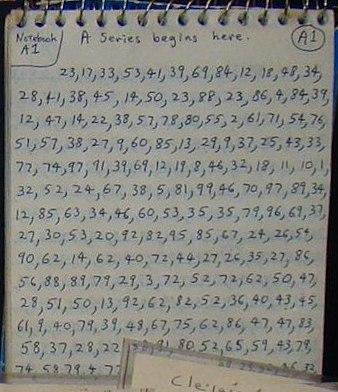 Notebook
A1
A Series begins here.
A1
23,17,33,53,41,39,69,84,12,18,48,34,
28,41,38,45,14,50,23,88,23,86,4,84,39,
12,47,14,22,38,57,78,80,55,2,61,71,54,76
51,57,38,27,9,60,85,13,29,9,37,25,43,33,
77,74,97,91,39,69,12,19,8,46,32,18,11,10,1,
32,52,24,67,38,5,81,99,46,70,97,89,34,
12,85,63,34,46,60,53,35,35,79,96,69,37,
27,30,53,20,92,82,95,85,67,24,26,54,
90,62,14,62,40,72,44,27,26,35,27,86,
56,88,89,79,29,3,72,52,72,62,50,47,
28,51,50,13,92,62,82,52,36,40,43,45,
61,9,40,79,39,48,67,75,62,86,47,47,83,
58,37,28,22 58,91,80,52,65,59,43,79,
74,58,79,4,77
Cle